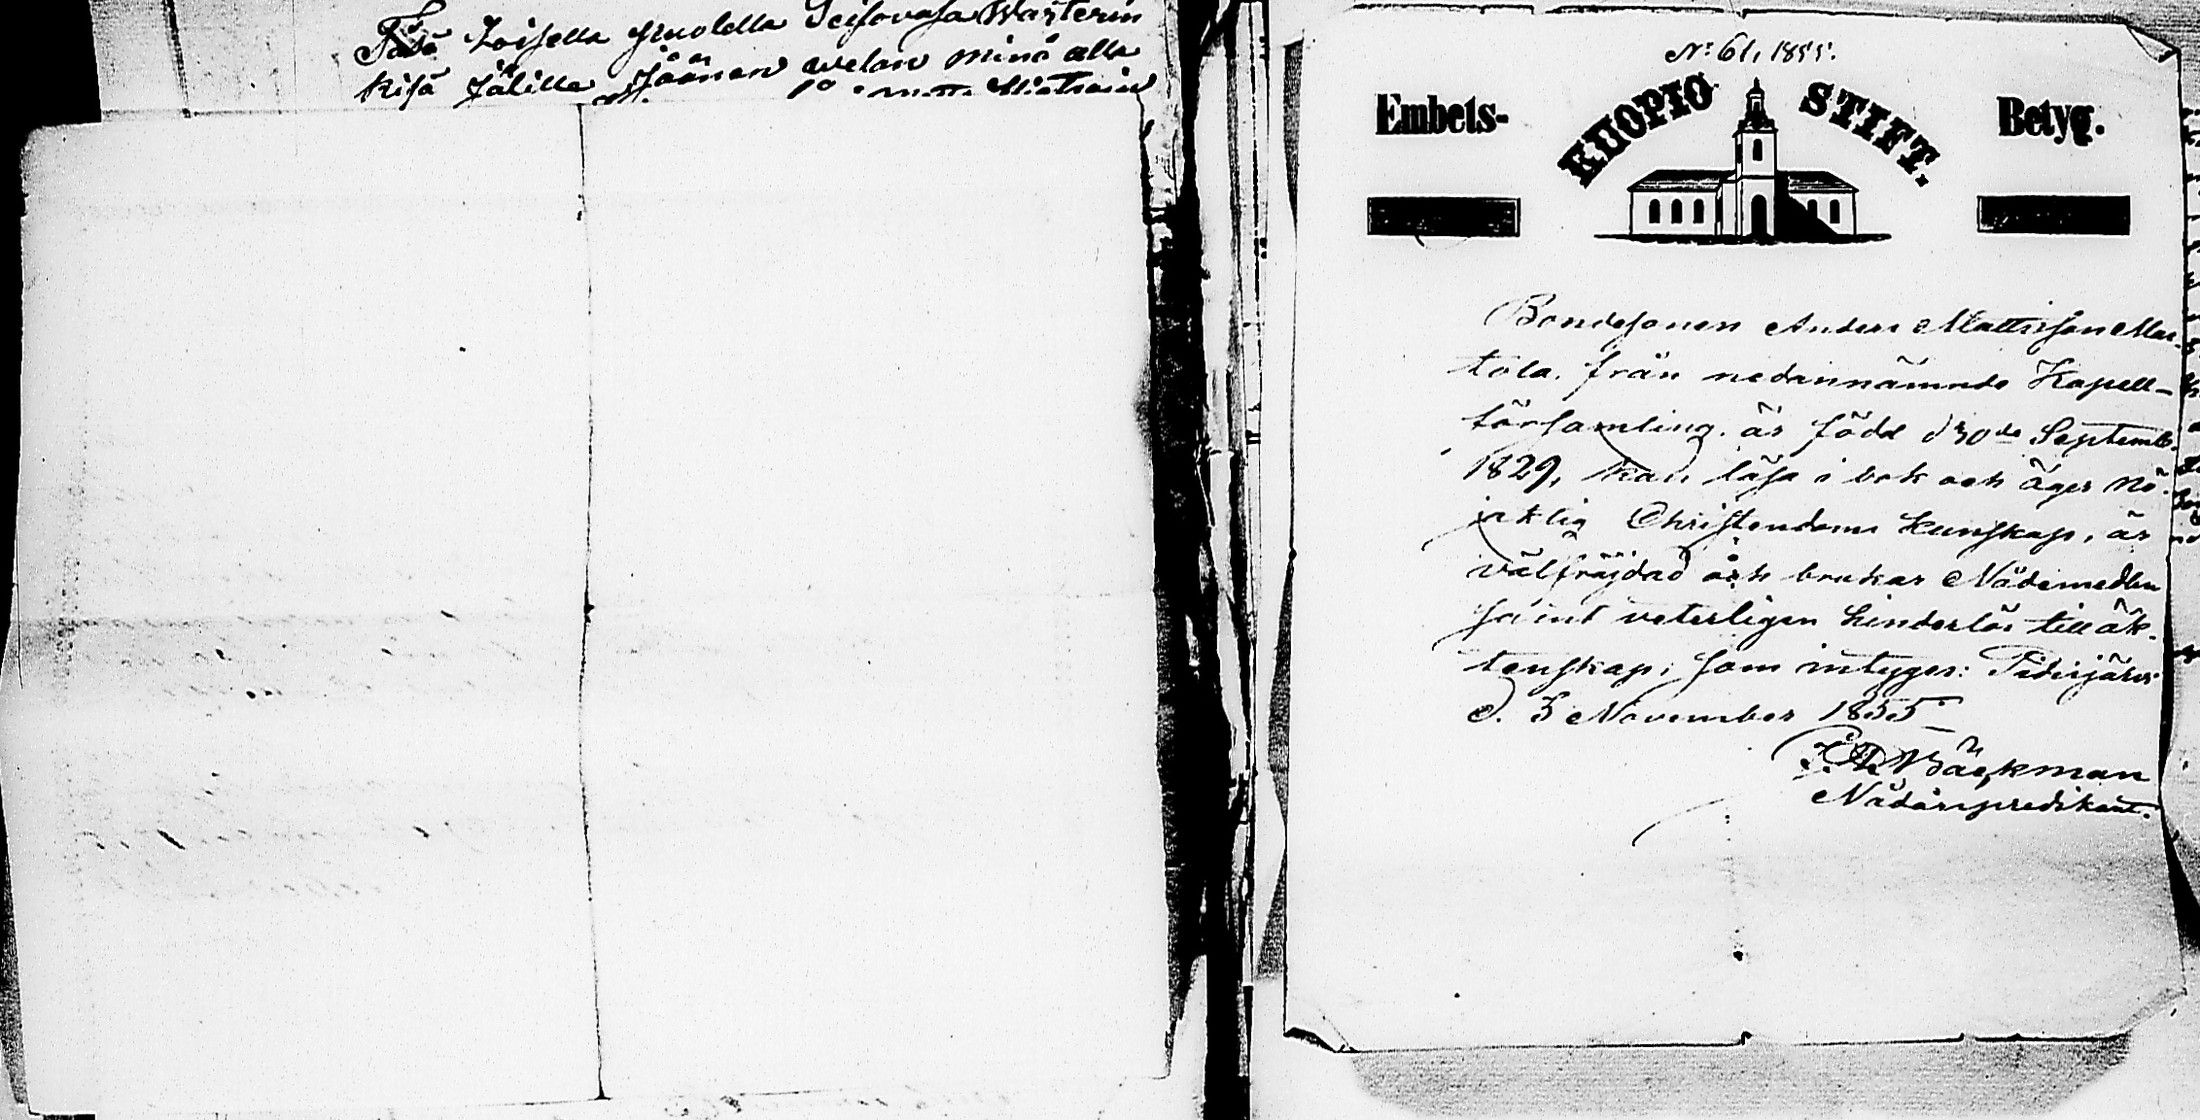 Tässä Toisella puolella Seisovasa Wasterin
kisä Jälille Jäänen welan minä alle
N:o 61, 1855.
Embets- KUOPIO STIFT. Betyg.
Bondesonen Anders Mattsson Mar-
tola. från nedannämnde Kapell-
församling. är född d 30de Septemb.
1829, kan läsa i bok och äger nö-
jaktig Christendoms kunskap, är
välfräjdad och brukar Nådemedlen
samt veterligen hinderlös till äk-
tenskap; som intyges: Pidisjärvi
d. 3 November 1855
Bäckman
Nådårspredikant.